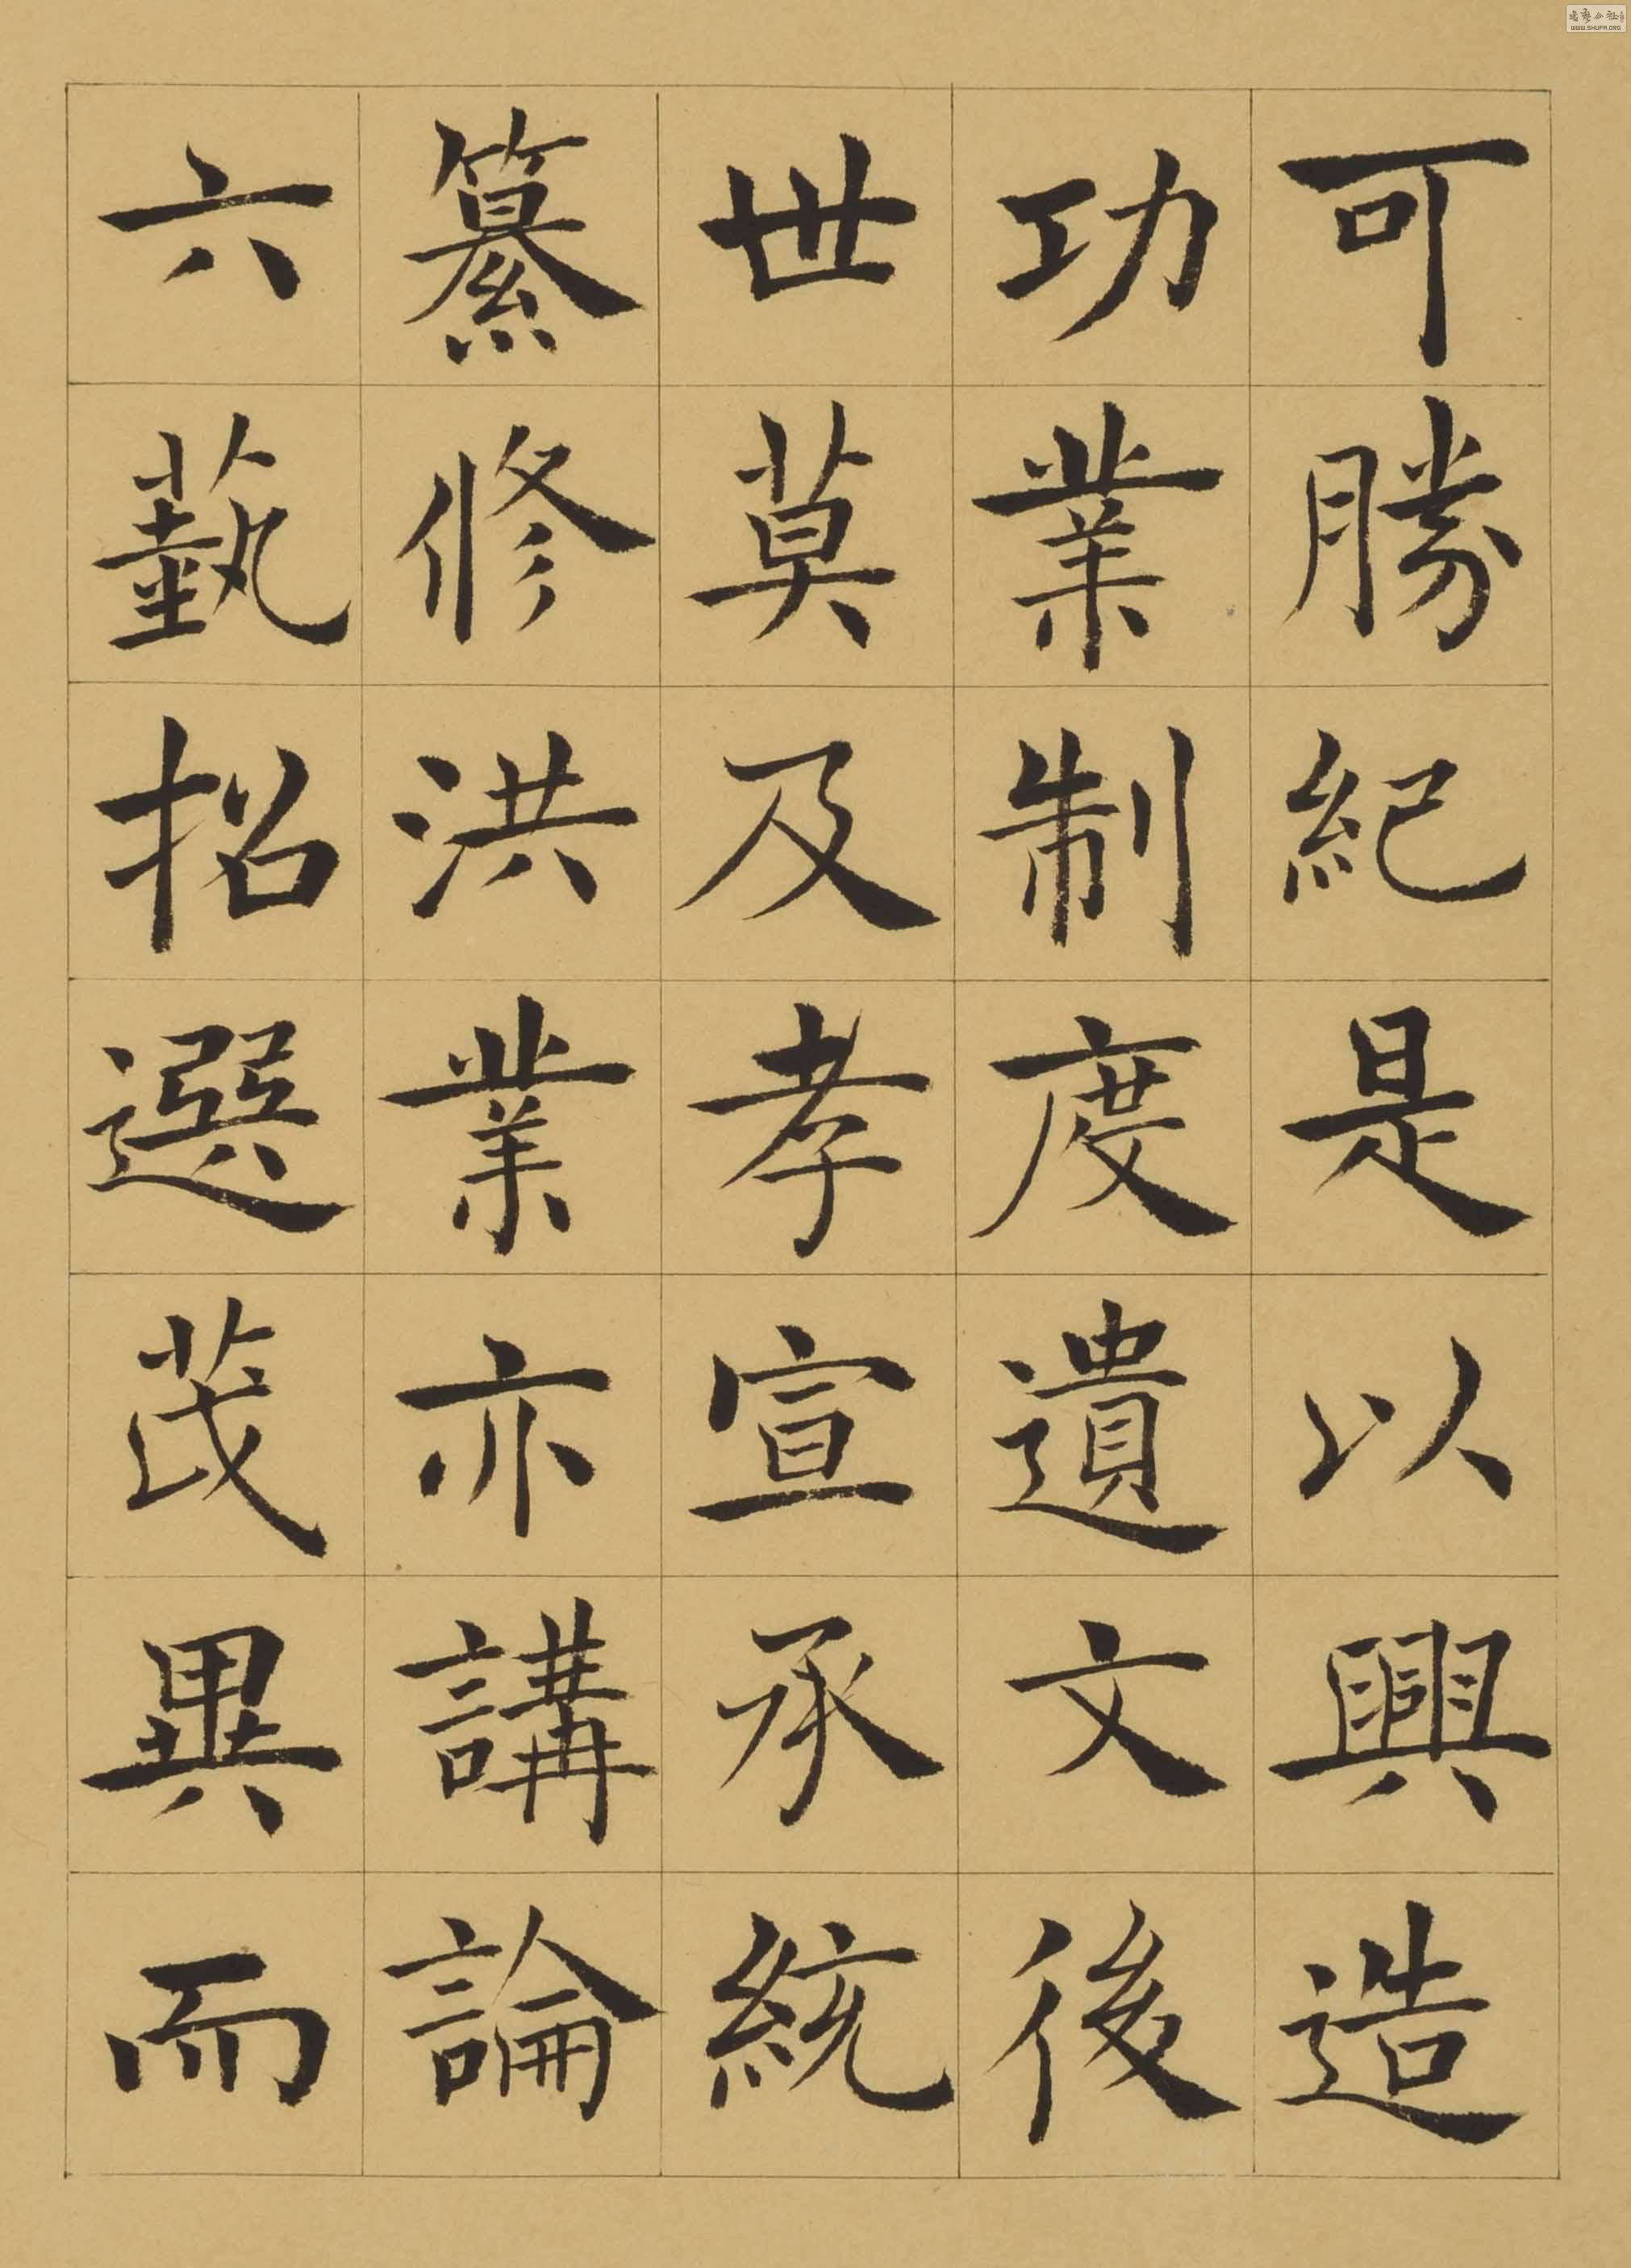 可勝紀是以興造
功業制度遺文後
世莫及孝宣承統
纂修洪業亦講論
六藝招選茂異而
WWW.SHUFA.ORG